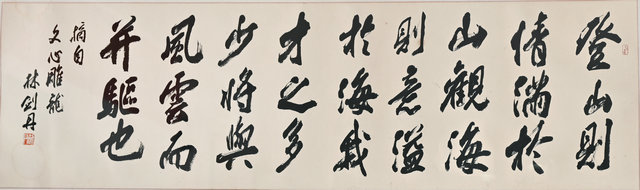 登山則
情滿於
山觀海
則意溢
於海我
才之多
少將與
風雲而
并驅也
摘自
文心雕龍
林劍丹